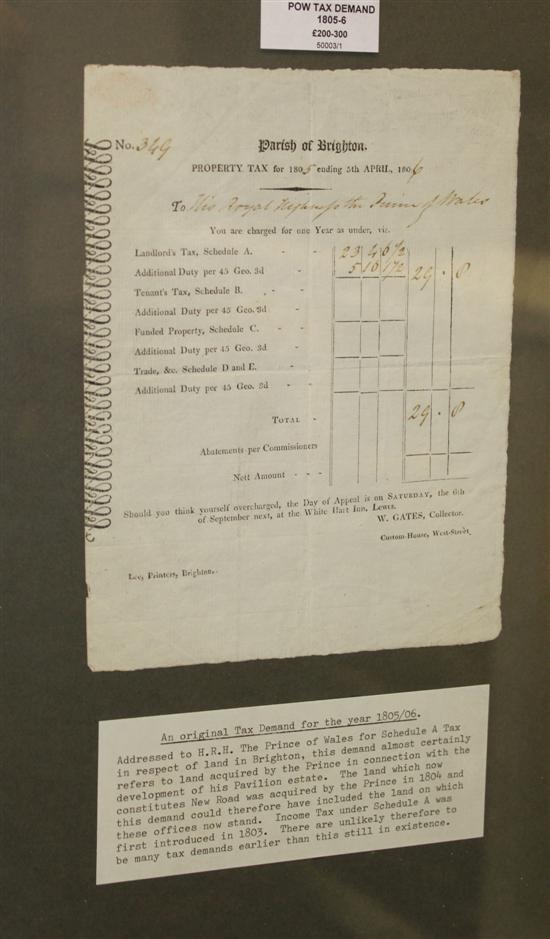 POW TAX DEMAND
1805-6
£200-300
50003/1
No. 349
Parish of Brighton.
PROPERTY TAX for 1805 ending 5th APRIL, 1806
To His Royal Highness the Prince of Wales
You are charged for one Year as under, viz.
Landlord's Tax, Schedule A. - - 23 4 6½
Additional Duty per 45 Geo. 3d - 5 16 1½ 29 . 8
Tenant's Tax, Schedule B. - -
Additional Duty per 45 Geo. 3d -
Funded Property, Schedule C. - -
Additional Duty per 45 Geo. 3d -
Trade, &c. Schedule D and E. - -
Additional Duty per 45 Geo. 3d - -
TOTAL - 29 . 8
Abatements per Commissioners
Nett Amount - - -
Should you think yourself overcharged, the Day of Appeal is on SATURDAY, the 6th
of September next, at the White Hart Inn, Lewes.
W. GATES, Collector.
Custom-House, West-Street.
Lee, Printers, Brighton.
An original Tax Demand for the year 1805/06.
Addressed to H.R.H. The Prince of Wales for Schedule A Tax
in respect of land in Brighton, this demand almost certainly
refers to land acquired by the Prince in connection with the
development of his Pavilion estate. The land which now
constitutes New Road was acquired by the Prince in 1804 and
this demand could therefore have included the land on which
these offices now stand. Income Tax under Schedule A was
first introduced in 1803. There are unlikely therefore to
be many tax demands earlier than this still in existence.